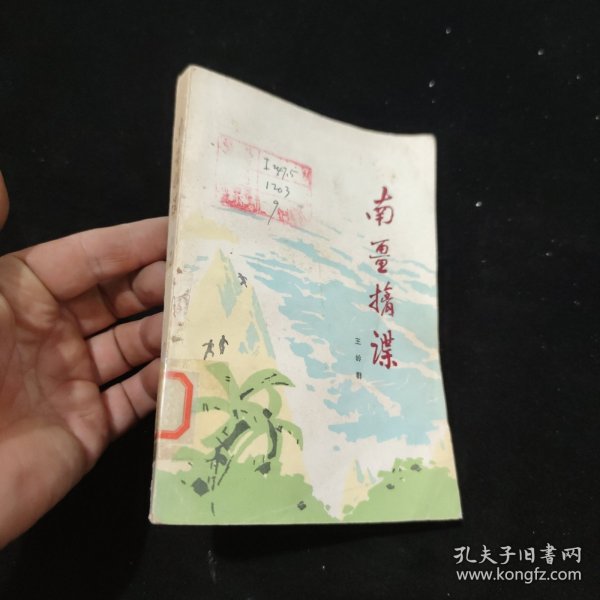 I247.5
1203
9
南畺擒谍
王岭群
孔夫子旧书网
www.kongfz.com